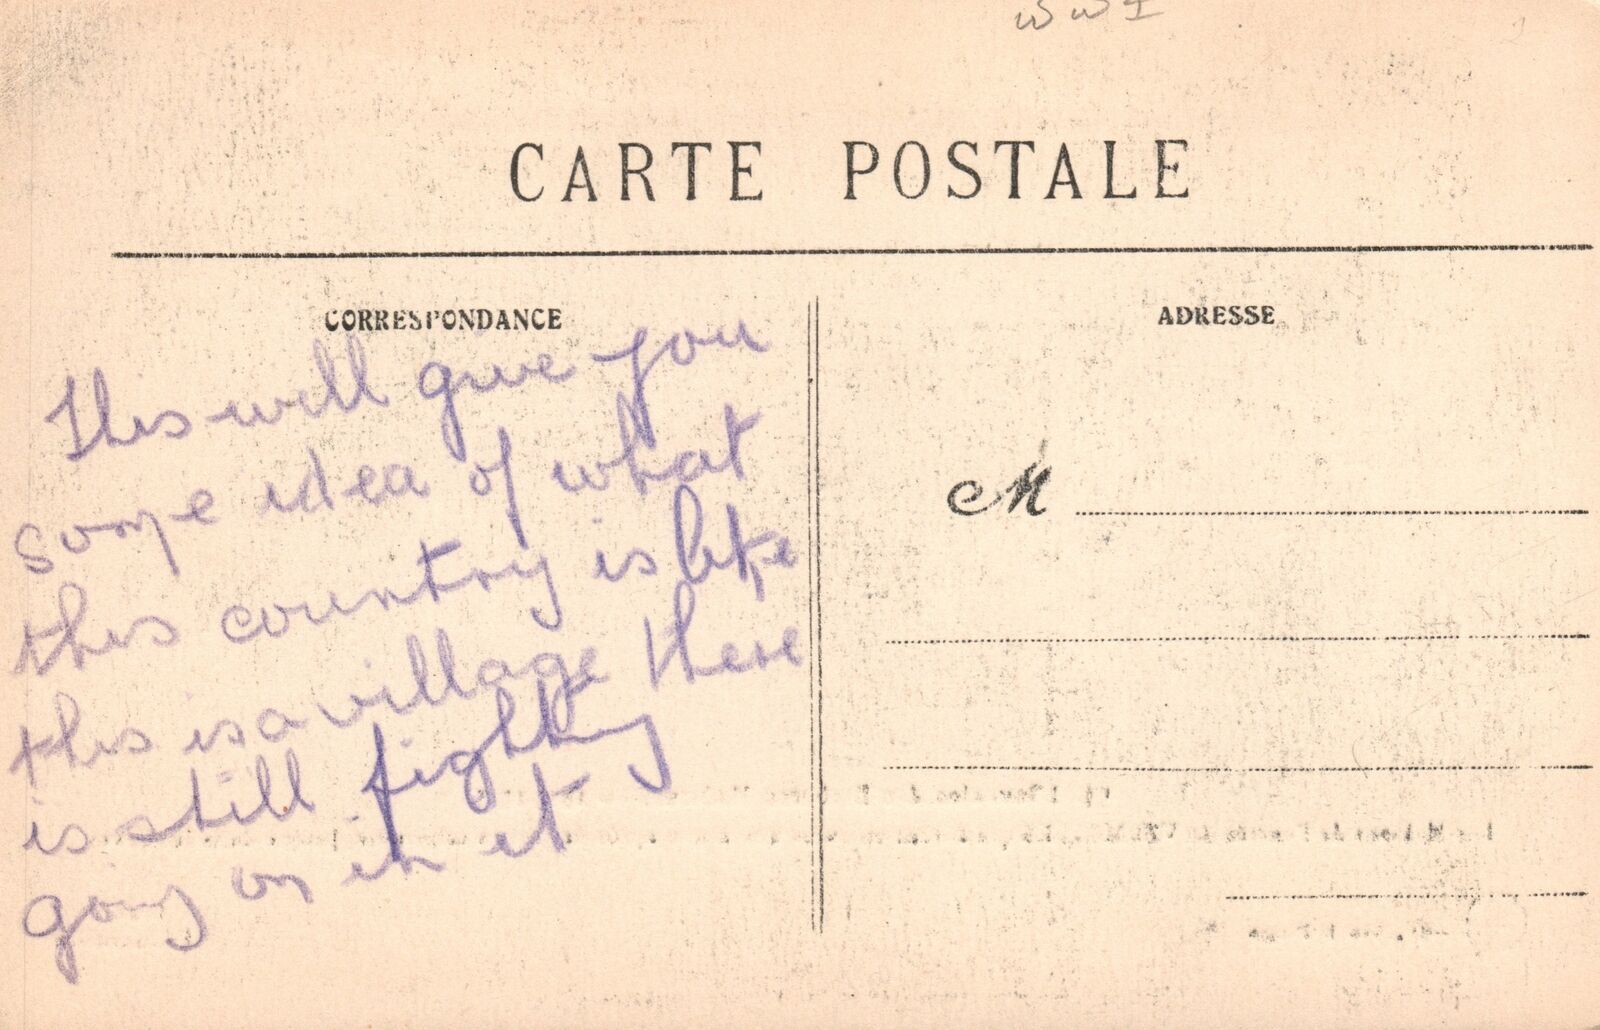 WWI
CARTE POSTALE
CORRESPONDANCE
ADRESSE
This will give you
some idea of what
this country is like
this is a village there
is still fighting
going on in it
M